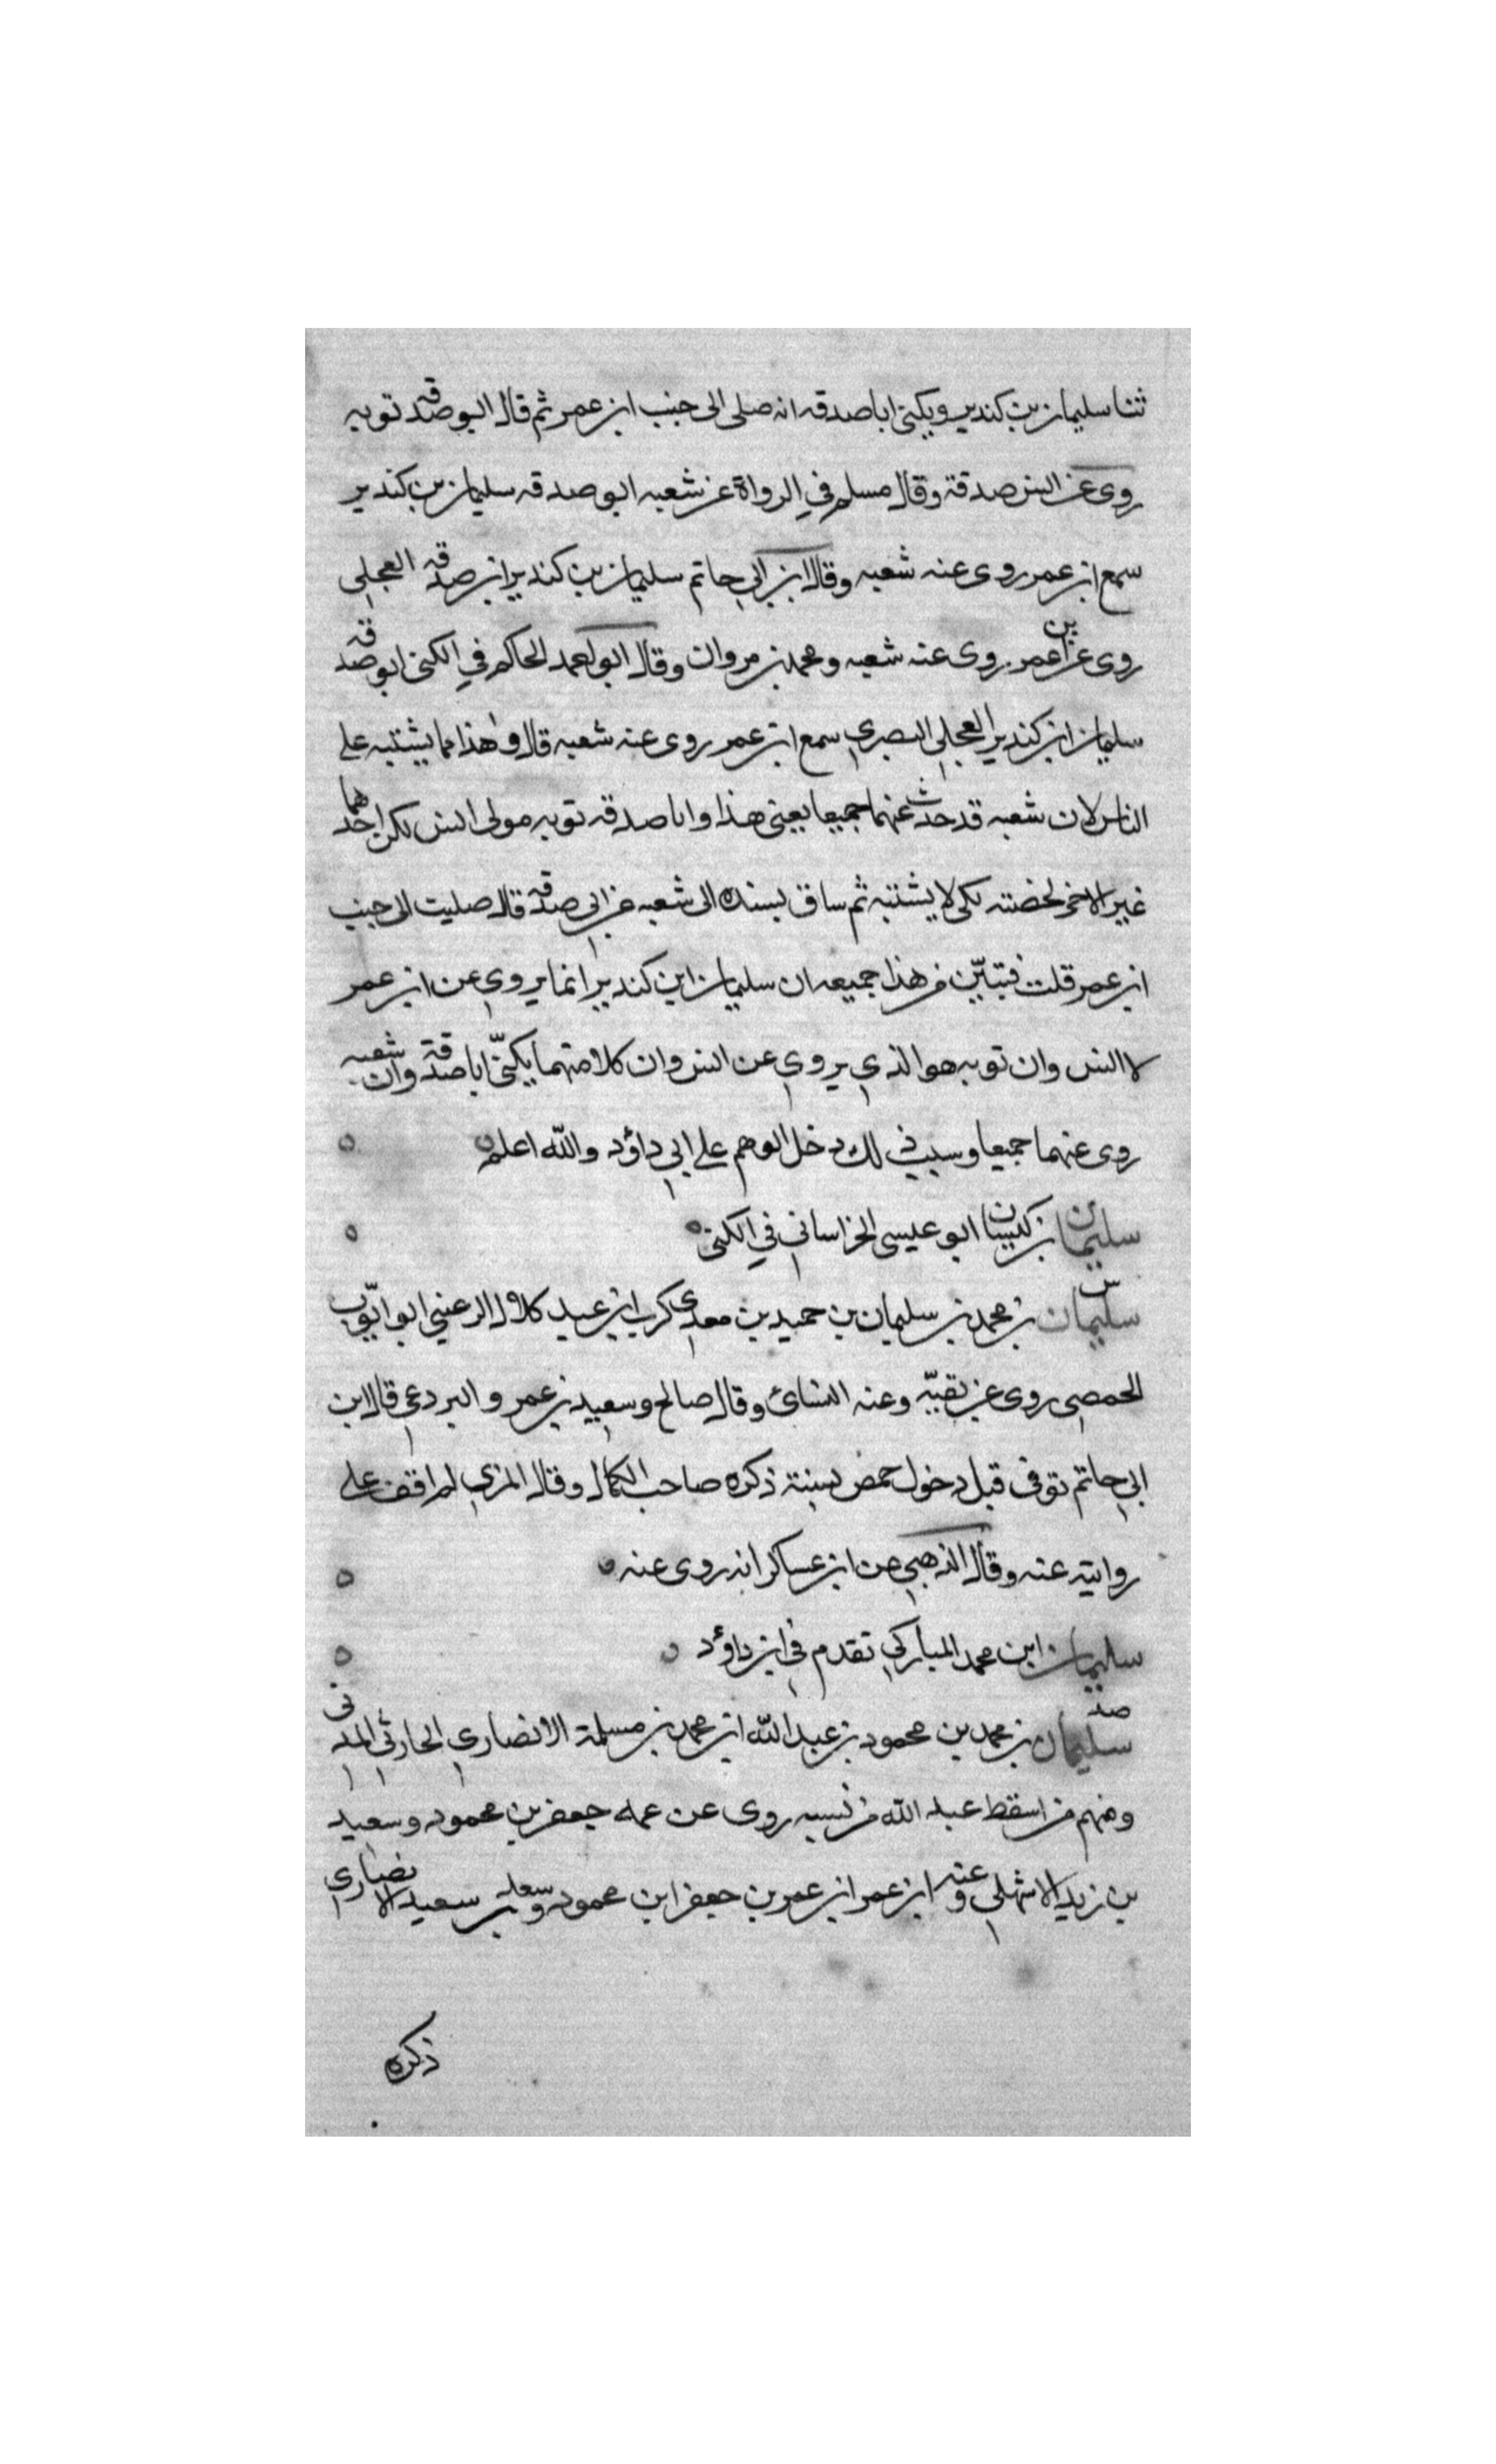 ثنا سليمان بن كندير ويكنى ابا صدقه انه صلى الى جنب ابن عمر ثم قال ابو صدقه توبه
روى عن انس صدقة وقال مسلم في الرواة عن شعبه ابو صدقه سليمان بن كندير
سمع ابن عمر روى عنه شعبه وقال ابن ابي حاتم سليمان بن كندير ابن صدقه العجلي
روى عن ابن عمر روى عنه شعبه ومحمد بن مروان وقال ابو احمد الحاكم في الكنى ابو صدقه
سليمان ابن كندير العجلي البصري سمع ابن عمر روى عنه شعبه قال وهذا مما يشتبه على
الناس لان شعبه قد حدث عنهما جميعا يعني هذا وابا صدقه توبه مولى انس لكن احدهما
غير الاخر لخصته لكي لا يشتبه ثم ساق بسنده الى شعبه عن ابي صدقه قال صليت الى جنب
ابن عمر قلت فتبيّن من هذا جميعه ان سليمان ابن كندير انما يروي عن ابن عمر
لا انس وان توبه هو الذي يروي عن انس وان كلا منهما يكنّى ابا صدقة وان شعبه
روى عنهما جميعا وسبب ذلك دخل الوهم على ابي داؤد والله اعلم ه
سليمان بن كيسان ابو عيسى الخراساني في الكنى ه
س
سليمان بن محمد بن سليمان بن حميد بن معدي كرب ابن عبد كلال الرعيني ابو ايّوب
الحمصي روى عن بقيّه وعنه النسائ وقال صالح وسعيد بن عمر و البردعي قال ابن
ابي حاتم توفى قبل دخول حمص بسنة ذكره صاحب الكمال وقال المزي لم اقف على
روايته عنه وقال الذهبي عن ابن عساكر انه روى عنه ه
سليمان ابن محمد المباركي تقدم في ابن داؤد ه
صد
سليمان بن محمد بن محمود بن عبد الله ابن محمد بن مسلمة الانصاري الحارثي المدني
ومنهم من اسقط عبد الله من نسبه روى عن عمه جعفر بن محمود وسعيد
بن زيد الاشهلي وعنه ابن عمر ابن عمر بن جعفر ابن محمود وسعد بن سعيد الانصاري
ذكره